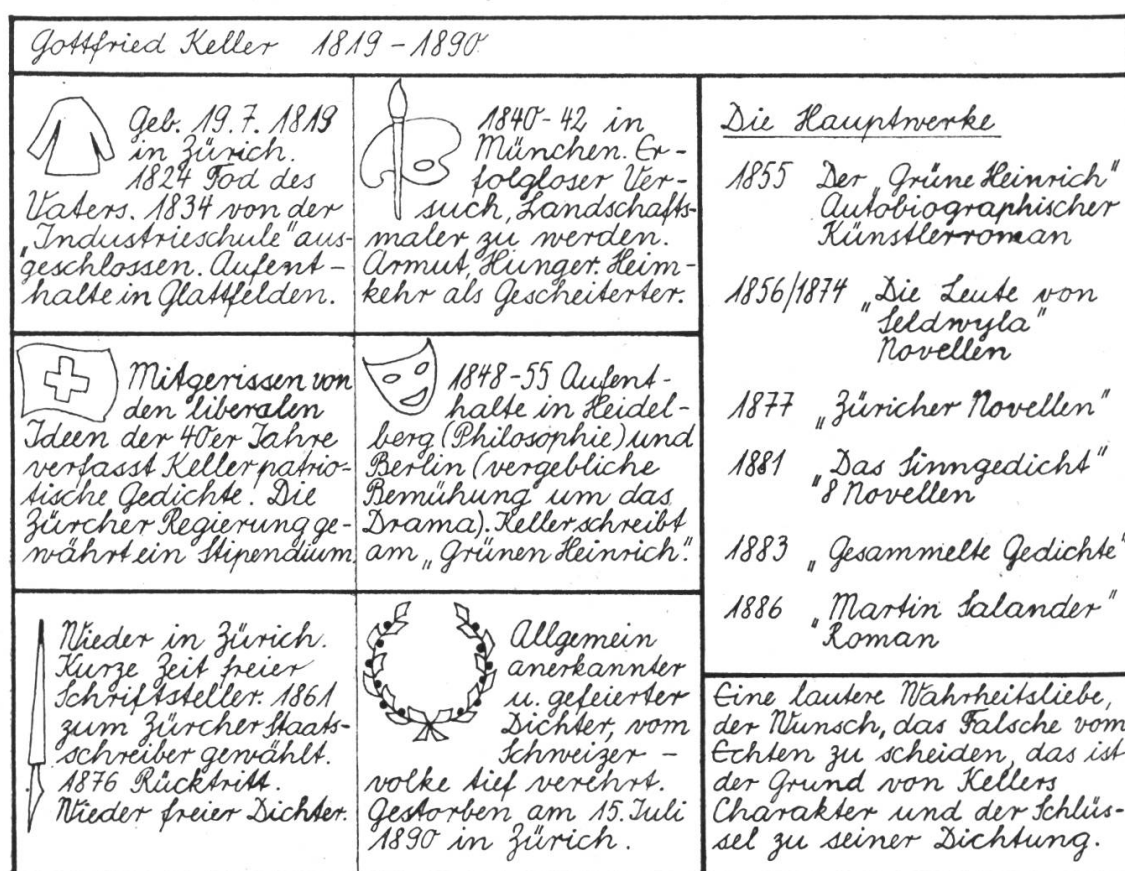 Gottfried Keller 1819 - 1890
Geb. 19.7.1819
in Zürich.
1824 Tod des
Vaters. 1834 von der
„Industrieschule" aus-
geschlossen. Aufent-
halte in Glattfelden.
1840 - 42 in
München. Er-
folgloser Ver-
such, Landschafts-
maler zu werden.
Armut, Hunger. Heim-
kehr als Gescheiterter.
Mitgerissen von
den liberalen
Ideen der 40er Jahre
verfasst Keller patrio-
tische Gedichte. Die
Zürcher Regierung ge-
währt ein Stipendium.
1848-55 Aufent-
halte in Heidel-
berg (Philosophie) und
Berlin (vergebliche
Bemühung um das
Drama). Keller schreibt
am „Grünen Heinrich".
Wieder in Zürich.
Kurze Zeit freier
Schriftsteller. 1861
zum Zürcher Staats-
schreiber gewählt.
1876 Rücktritt.
Wieder freier Dichter.
Allgemein
anerkannter
u. gefeierter
Dichter, vom
Schweizer-
volke tief verehrt.
Gestorben am 15. Juli
1890 in Zürich.
Die Hauptwerke
1855 Der „Grüne Heinrich"
Autobiographischer
Künstlerroman
1856/1874 „Die Leute von
Seldwyla"
Novellen
1877 „Züricher Novellen"
1881 „Das Sinngedicht"
8 Novellen
1883 „Gesammelte Gedichte"
1886 „Martin Salander"
Roman
Eine lautere Wahrheitsliebe,
der Wunsch, das Falsche vom
Echten zu scheiden, das ist
der Grund von Kellers
Charakter und der Schlüs-
sel zu seiner Dichtung.